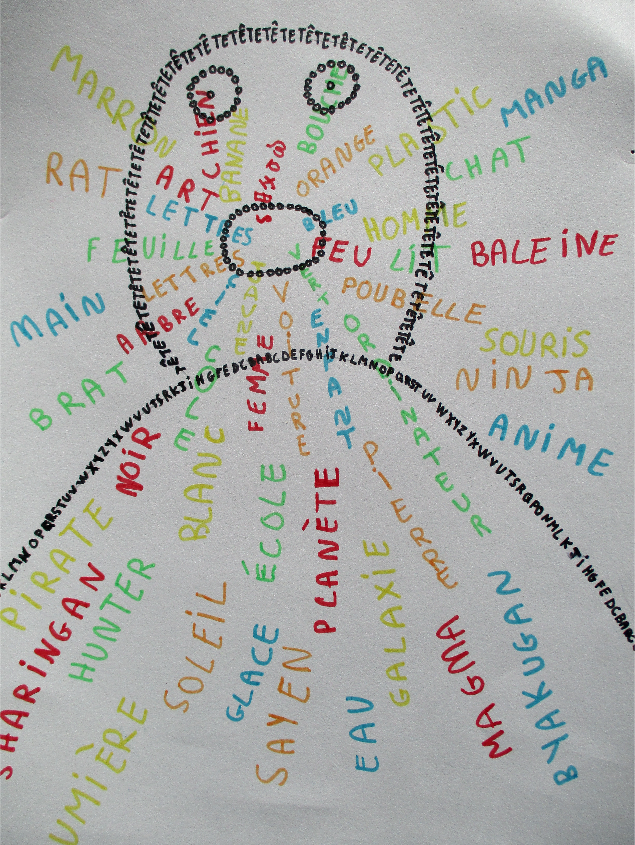 TETÊTETÊTETÊTETÊTETÊTETÊTETÊTETÊTETÊTETÊTE
MARRON
CHIEN
BANANE
SAXOO
BOUCHE
ORANGE
PLASTIC
MANGA
RAT
ART
CHAT
LETTRES
BLEU
HOMME
FEUILLE
FEU
LIT
BALEINE
LETTRES
CIEL
JAUNE
VOITURE
VERT
POUBELLE
MAIN
ARBRE
ENFANT
ORDINATEUR
SOURIS
BRAT
COLE
FEMME
NINJA
KLMNOPQRSTUVWXYZYXWVUTSRKJIHGFEDCBABCDEFGHIJKLMNOPQRSTUVWXYZYXWVUTSRQPONMLKJIHGFEDCBABC
NOIR
BLANC
ÉCOLE
PLANÈTE
PIERRE
ANIME
PIRATE
SHARINGAN
HUNTER
SOLEIL
GLACE
SAYEN
EAU
GALAXIE
MAGMA
BYAKUGAN
UMIÈRE